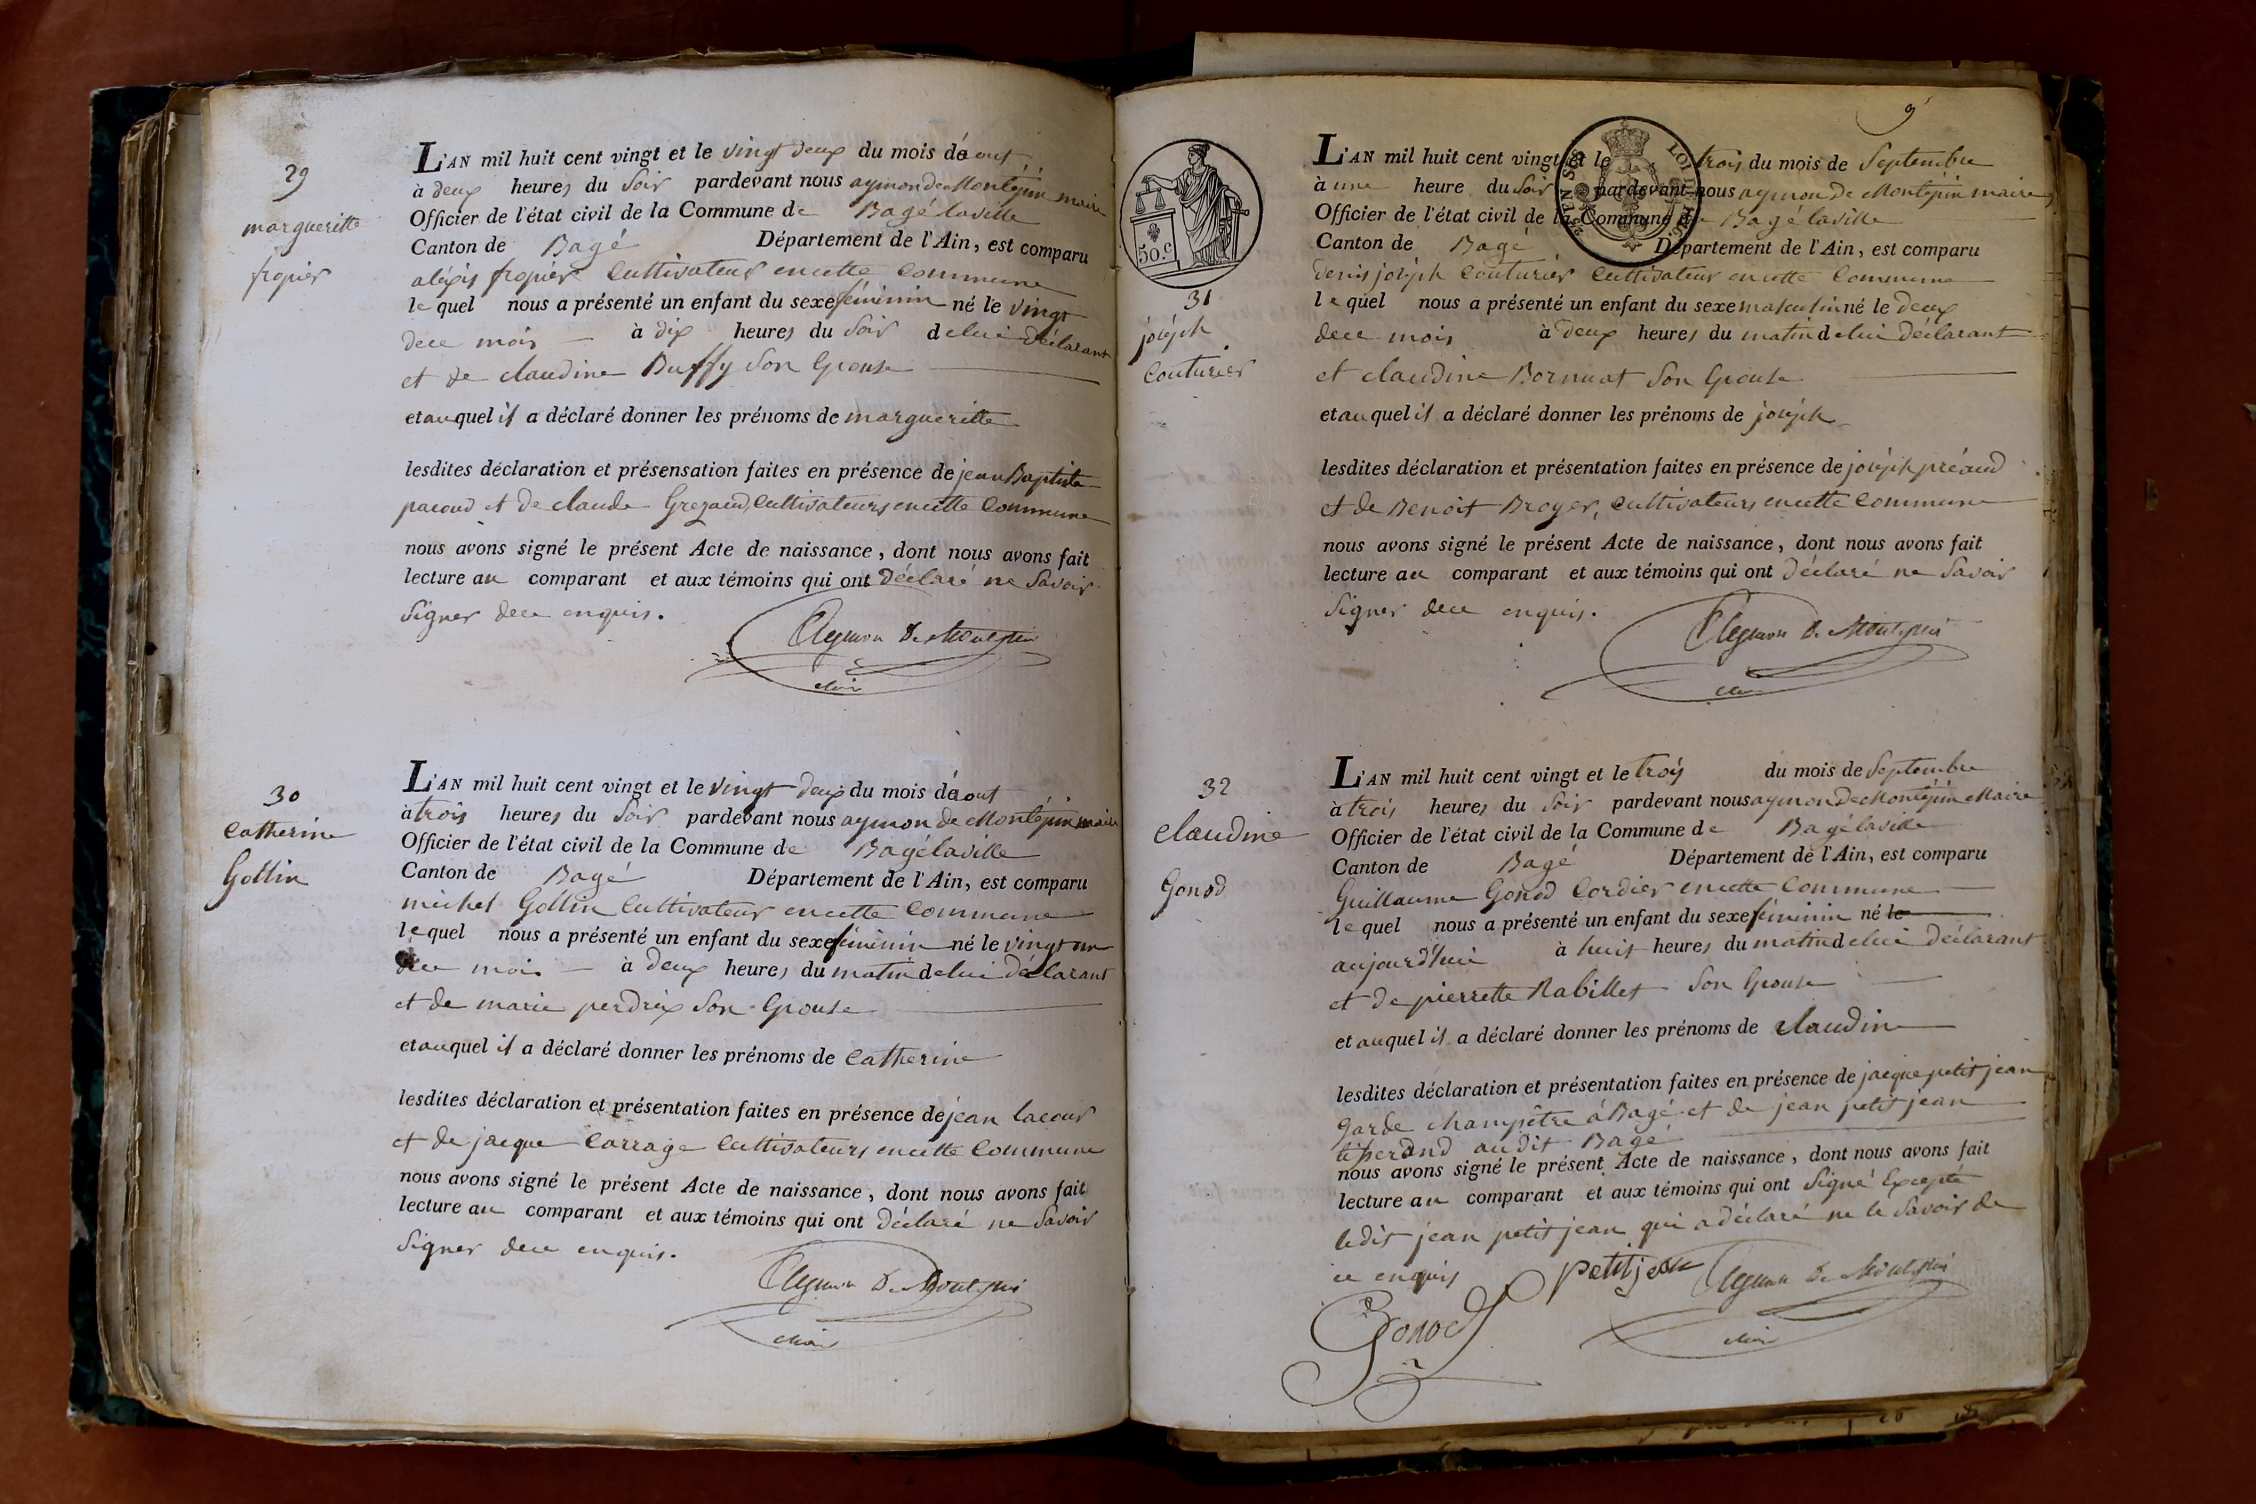 29
margueritte
fropier
L'AN mil huit cent vingt et le vingt deux du mois d'aout
à deux heures du Soir pardevant nous aymon de Montépin maire
Officier de l'état civil de la Commune de Bagé laville
Canton de Bagé Département de l'Ain, est comparu
aléxis fropier Cultivateur en cette Commune
le quel nous a présenté un enfant du sexe féminin né le vingt
de ce mois à dix heures du Soir de lui déclarant
et de claudine Buffy Son Epouse
et auquel il a déclaré donner les prénoms de margueritte
lesdites déclaration et présensation faites en présence de jean Baptiste
pacoud et de claude Grezaud, Cultivateurs en cette Commune
nous avons signé le présent Acte de naissance, dont nous avons fait
lecture au comparant et aux témoins qui ont déclaré ne Savoir
Signer de ce enquis.
Aymon De Montépin
maire
30
Catherine
Gollin
L'AN mil huit cent vingt et le vingt deux du mois d'aout
à trois heures du Soir pardevant nous aymon de Montépin maire
Officier de l'état civil de la Commune de Bagé laville
Canton de Bagé Département de l'Ain, est comparu
michel Gollin Cultivateur en cette Commune
le quel nous a présenté un enfant du sexe féminin né le vingt un
de ce mois à deux heures du matin de lui déclarant
et de marie perdrix Son Epouse
et auquel il a déclaré donner les prénoms de Catherine
lesdites déclaration et présentation faites en présence de jean lacour
et de jacque Carrage Cultivateurs en cette Commune
nous avons signé le présent Acte de naissance, dont nous avons fait
lecture au comparant et aux témoins qui ont déclaré ne Savoir
Signer de ce enquis.
Aymon De Montépin
maire
9
50.c
31
joséph
Couturier
L'AN mil huit cent vingt et le trois du mois de Septembre
à une heure du Soir pardevant nous aymon de Montépin maire
Officier de l'état civil de la Commune de Bagé laville
Canton de Bagé Département de l'Ain, est comparu
denis joséph Couturier Cultivateur en cette Commune
le quel nous a présenté un enfant du sexe masculin né le deux
de ce mois à deux heures du matin de lui déclarant
et claudine Bornuat Son Epouse
et auquel il a déclaré donner les prénoms de joséph
lesdites déclaration et présentation faites en présence de joséph préaud
et de Benoit Broyer, Cultivateurs en cette Commune
nous avons signé le présent Acte de naissance, dont nous avons fait
lecture au comparant et aux témoins qui ont déclaré ne Savoir
Signer de ce enquis.
Aymon De Montépin
maire
32
Claudine
Gonod
L'AN mil huit cent vingt et le trois du mois de Septembre
à trois heures du Soir pardevant nous aymon de Montépin Maire
Officier de l'état civil de la Commune de Bagé laville
Canton de Bagé Département de l'Ain, est comparu
Guillaume Gonod Cordier en cette Commune
le quel nous a présenté un enfant du sexe féminin né le
aujourd'hui à huit heures du matin de lui déclarant
et de pierrette Rabillet Son Epouse
et auquel il a déclaré donner les prénoms de claudine
lesdites déclaration et présentation faites en présence de jacque petit jean
garde champêtre à Bagé et de jean petit jean
tisserand audit Bagé
nous avons signé le présent Acte de naissance, dont nous avons fait
lecture au comparant et aux témoins qui ont Signé Excepté
ledit jean petit jean qui a déclaré ne le Savoir de
ce enquis
petitjean
Aymon De Montépin
maire
Gonod